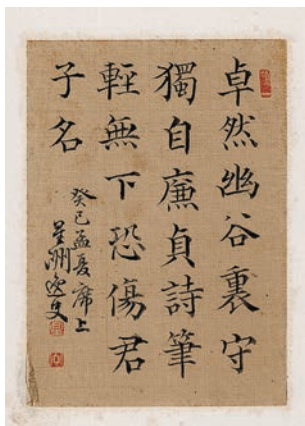 卓然幽谷裏守
獨自廉貞詩筆
輕無下恐傷君
子名
癸巳孟夏席上
星洲逸叟